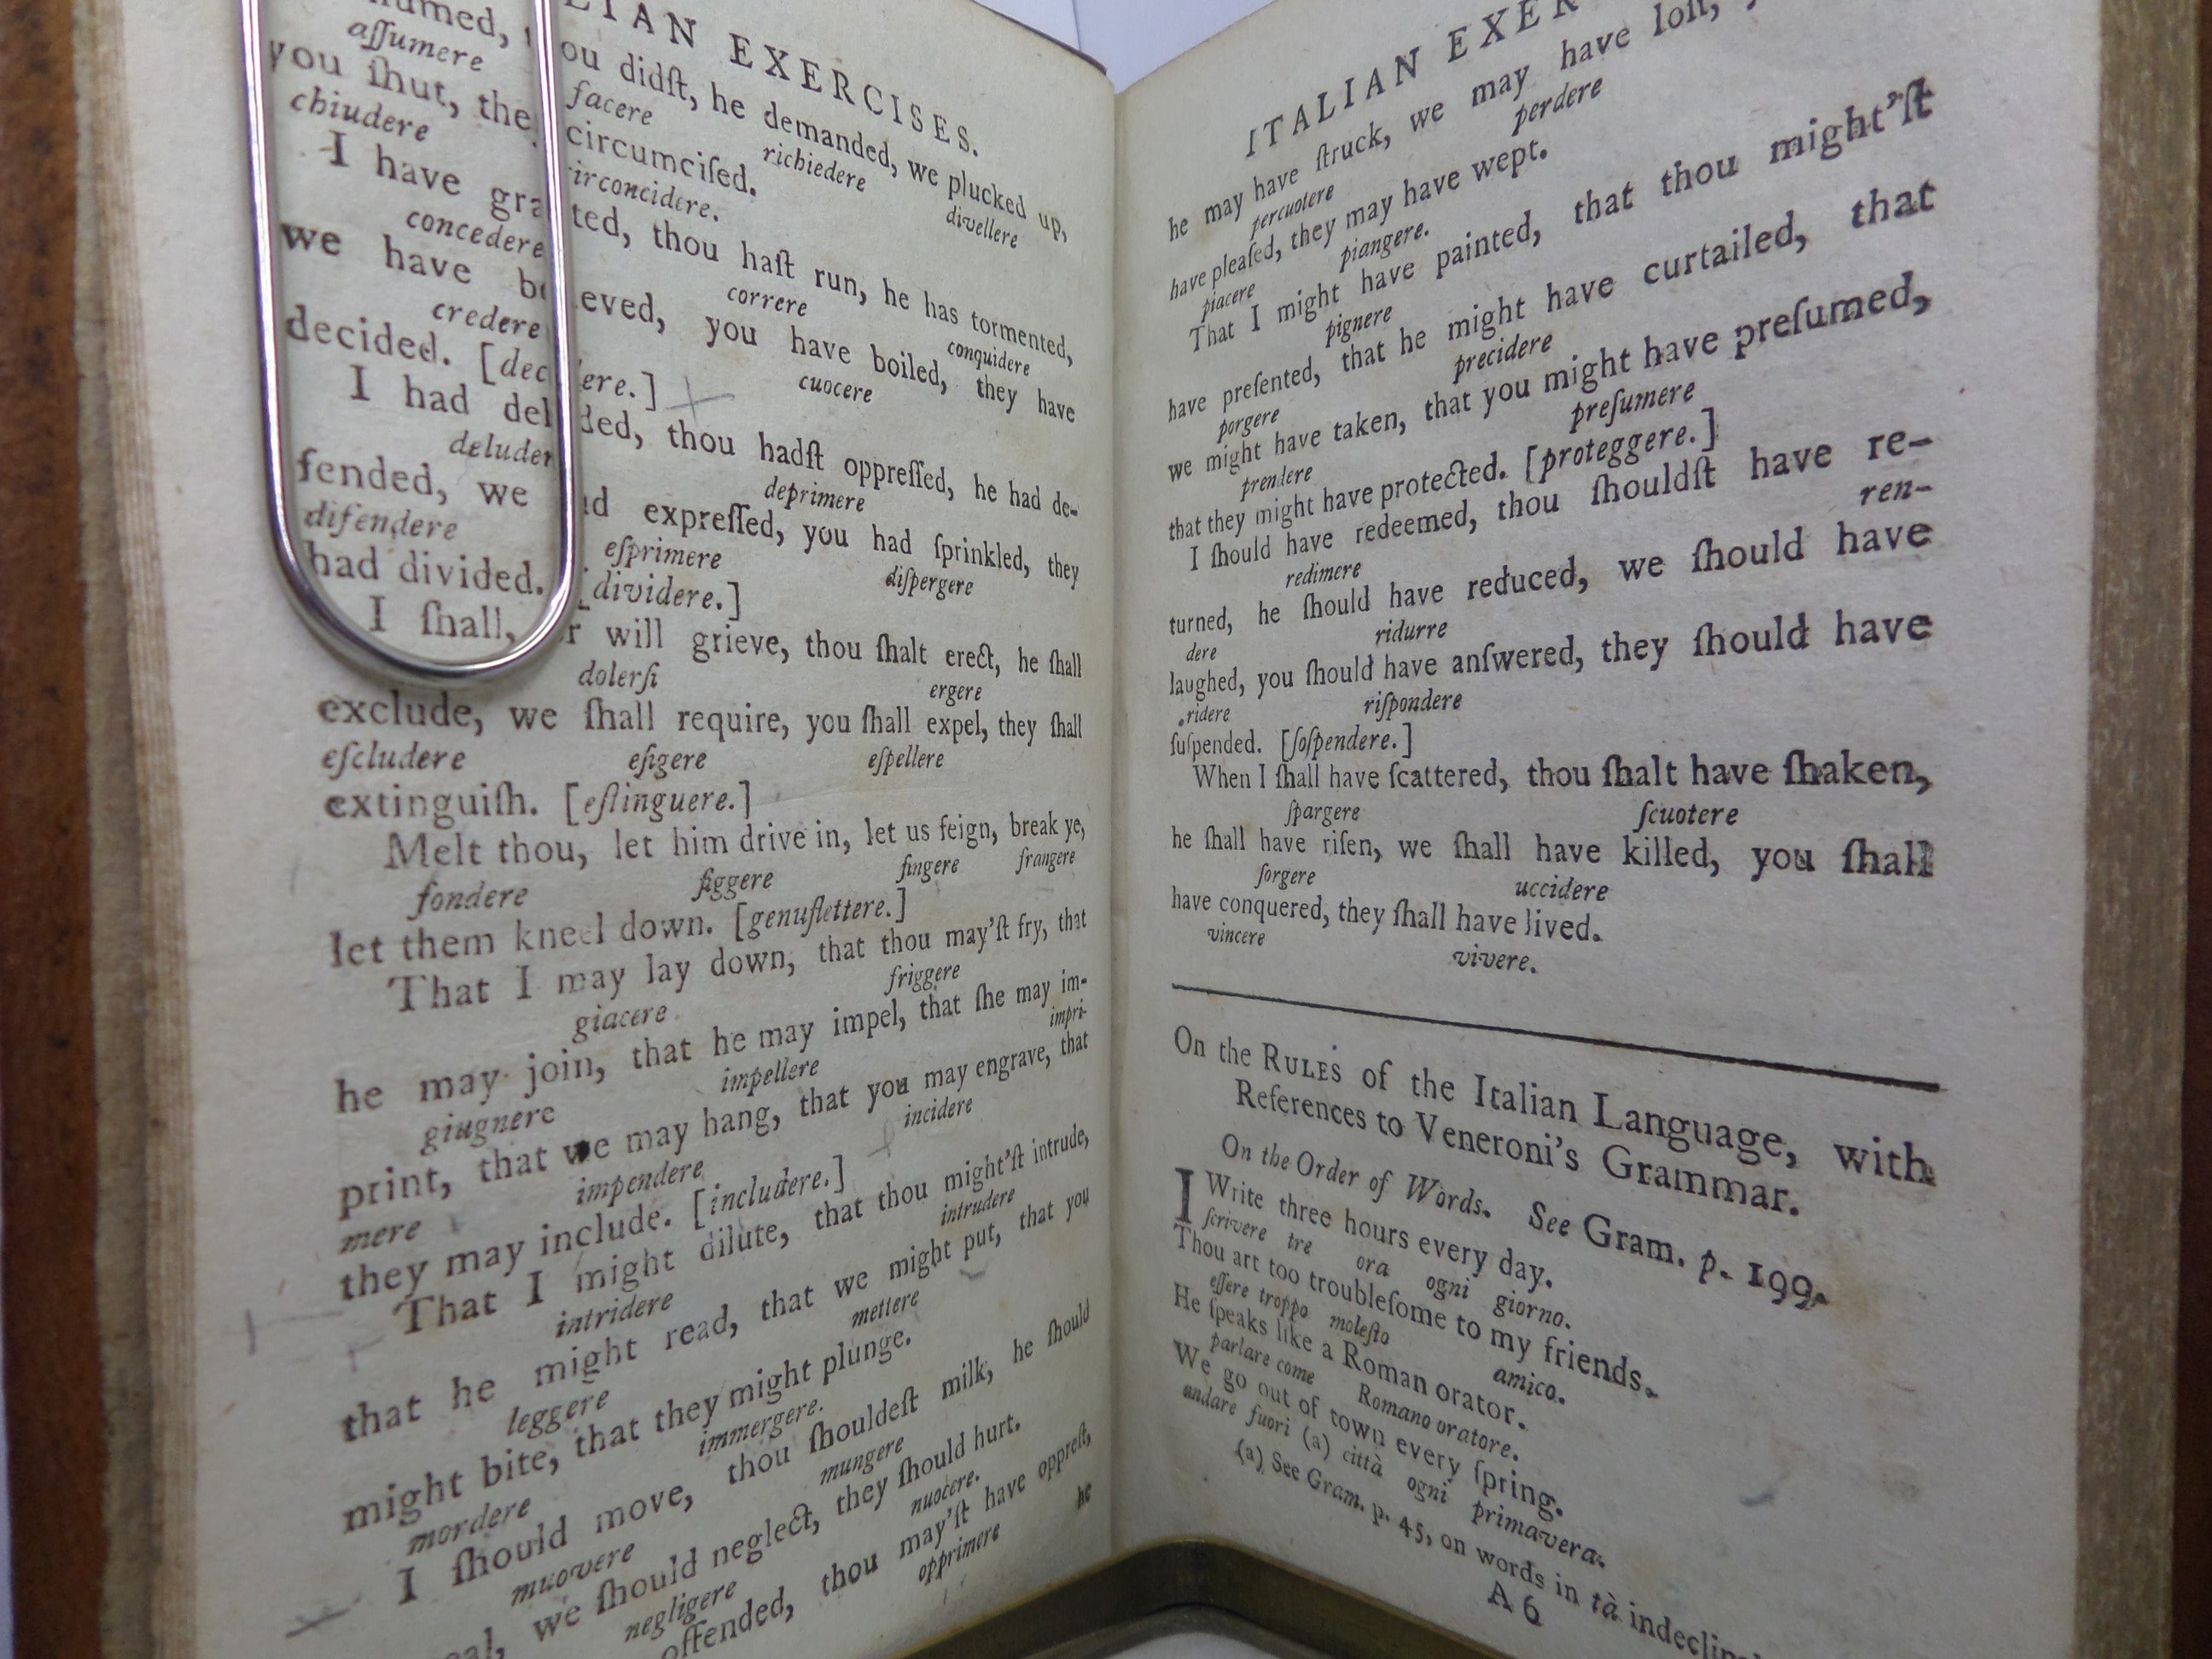 ITALIAN EXERCISES.
you ſhut, the ou didſt, he demanded, we plucked up,
aſſumere facere richiedere divellere
chiudere circumciſed.
circoncidere.
I have granted, thou haſt run, he has tormented,
concedere correre conquidere
we have believed, you have boiled, they have
credere cuocere
decided. [decidere.]
I had deluded, thou hadſt oppreſſed, he had de-
deludere deprimere
fended, we had expreſſed, you had ſprinkled, they
difendere eſprimere diſpergere
had divided. [dividere.]
I ſhall, or will grieve, thou ſhalt erect, he ſhall
dolerſi ergere
exclude, we ſhall require, you ſhall expel, they ſhall
eſcludere eſigere eſpellere
extinguiſh. [eſtinguere.]
Melt thou, let him drive in, let us feign, break ye,
fondere figgere fingere frangere
let them kneel down. [genuflettere.]
That I may lay down, that thou may'ſt fry, that
giacere friggere
he may join, that he may impel, that ſhe may im-
giugnere impellere impri-
print, that we may hang, that you may engrave, that
mere impendere incidere
they may include. [includere.]
That I might dilute, that thou might'ſt intrude,
intridere intrudere
that he might read, that we might put, that you
leggere mettere
might bite, that they might plunge.
mordere immergere.
I ſhould move, thou ſhouldeſt milk, he ſhould
muovere mungere
we ſhould neglect, they ſhould hurt.
negligere nuocere.
offended, thou may'ſt have oppreſt,
opprimere he
ITALIAN EXER
he may have ſtruck, we may have loſt,
percuotere perdere
have pleaſed, they may have wept.
piacere piangere.
That I might have painted, that thou might'ſt
pignere
have preſented, that he might have curtailed, that
porgere precidere
we might have taken, that you might have preſumed,
prendere preſumere
that they might have protected. [proteggere.]
I ſhould have redeemed, thou ſhouldſt have re-
redimere ren-
turned, he ſhould have reduced, we ſhould have
dere ridurre
laughed, you ſhould have anſwered, they ſhould have
ridere riſpondere
ſuſpended. [ſoſpendere.]
When I ſhall have ſcattered, thou ſhalt have ſhaken,
ſpargere ſcuotere
he ſhall have riſen, we ſhall have killed, you ſhall
ſorgere uccidere
have conquered, they ſhall have lived.
vincere vivere.
On the RULES of the Italian Language, with
References to Veneroni's Grammar.
On the Order of Words. See Gram. p. 199.
I Write three hours every day.
ſcrivere tre ora ogni giorno.
Thou art too troubleſome to my friends.
eſſere troppo moleſto amico.
He ſpeaks like a Roman orator.
parlare come Romano oratore.
We go out of town every ſpring.
andare fuori (a) città ogni primavera.
(a) See Gram. p. 45, on words in tà indeclin
A 6